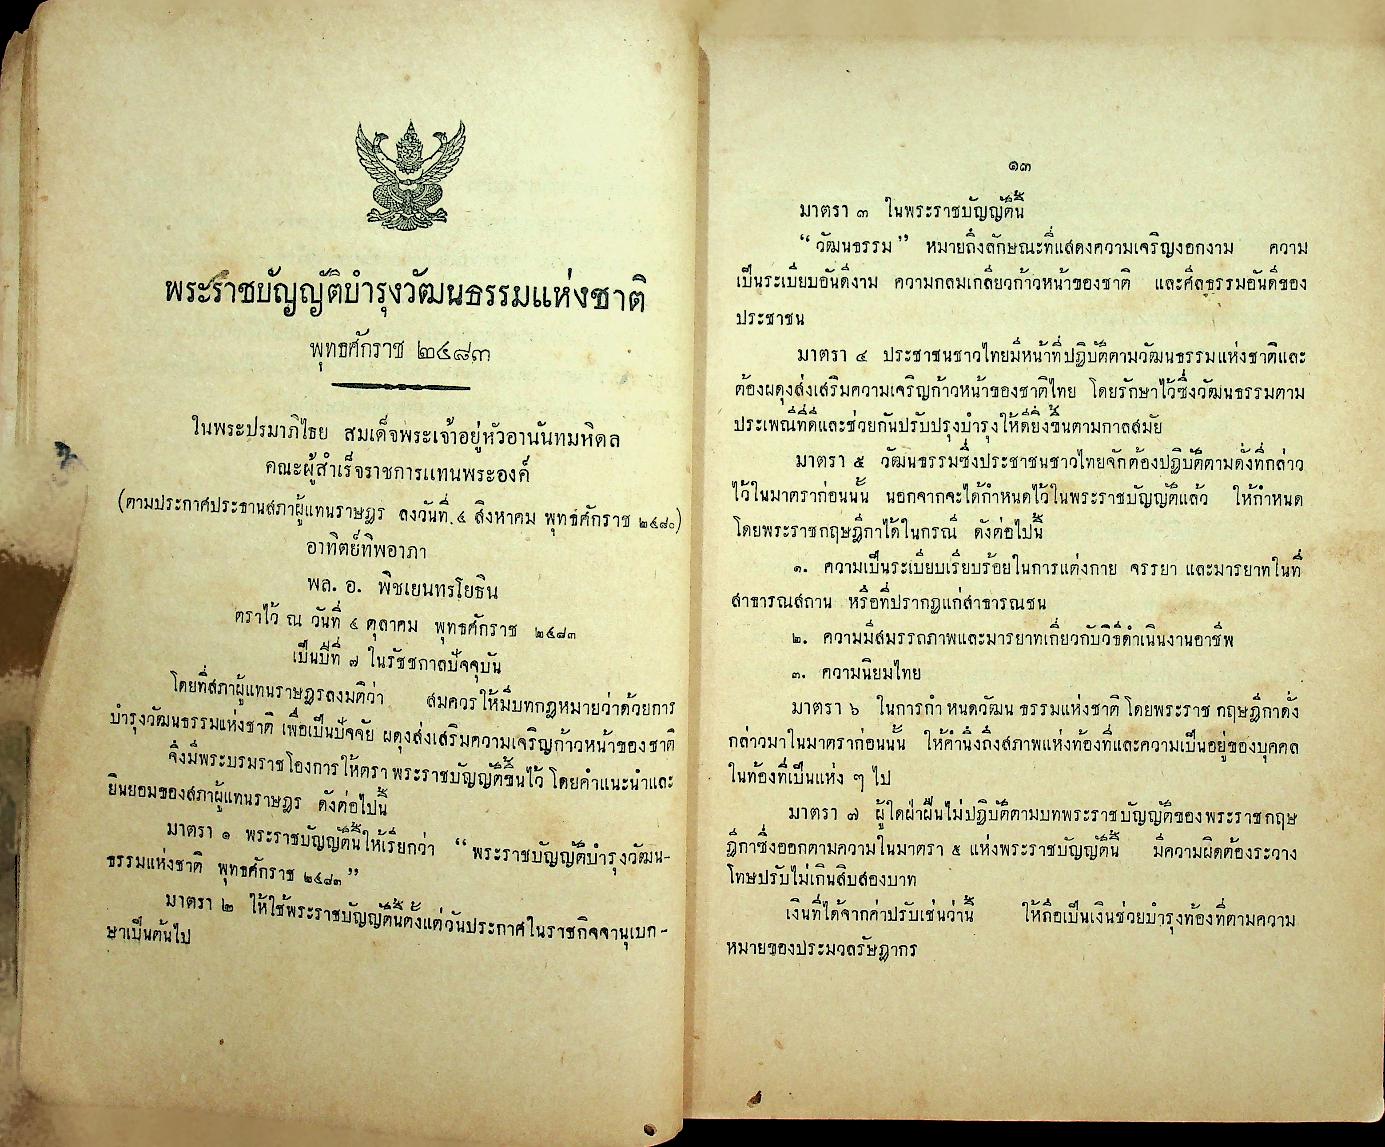 พระราชบัญญัติบำรุงวัฒนธรรมแห่งชาติ
พุทธศักราช ๒๔๘๓
ในพระปรมาภิไธย สมเด็จพระเจ้าอยู่หัวอานันทมหิดล
คณะผู้สำเร็จราชการแทนพระองค์
(ตามประกาศประธานสภาผู้แทนราษฎร ลงวันที่ ๔ สิงหาคม พุทธศักราช ๒๔๘๐)
อาทิตย์ทิพอาภา
พล. อ. พิชเยนทรโยธิน
ตราไว้ ณ วันที่ ๔ ตุลาคม พุทธศักราช ๒๔๘๓
เป็นปีที่ ๗ ในรัชชกาลปัจจุบัน
โดยที่สภาผู้แทนราษฎรลงมติว่า สมควรให้มีบทกฎหมายว่าด้วยการ
บำรุงวัฒนธรรมแห่งชาติ เพื่อเป็นปัจจัย ผดุงส่งเสริมความเจริญก้าวหน้าของชาติ
จึ่งมีพระบรมราชโองการให้ตราพระราชบัญญัติขึ้นไว้ โดยคำแนะนำและ
ยินยอมของสภาผู้แทนราษฎร ดังต่อไปนี้
มาตรา ๑ พระราชบัญญัตินี้ให้เรียกว่า “พระราชบัญญัติบำรุงวัฒน-
ธรรมแห่งชาติ พุทธศักราช ๒๔๘๓”
มาตรา ๒ ให้ใช้พระราชบัญญัตินี้ตั้งแต่วันประกาศในราชกิจจานุเบก-
ษาเป็นต้นไป
๑๓
มาตรา ๓ ในพระราชบัญญัตินี้
“วัฒนธรรม” หมายถึงลักษณะที่แสดงความเจริญงอกงาม ความ
เป็นระเบียบอันดีงาม ความกลมเกลียวก้าวหน้าของชาติ และศีลธรรมอันดีของ
ประชาชน
มาตรา ๔ ประชาชนชาวไทยมีหน้าที่ปฏิบัติตามวัฒนธรรมแห่งชาติและ
ต้องผดุงส่งเสริมความเจริญก้าวหน้าของชาติไทย โดยรักษาไว้ซึ่งวัฒนธรรมตาม
ประเพณีที่ดีและช่วยกันปรับปรุงบำรุงให้ดียิ่งขึ้นตามกาลสมัย
มาตรา ๕ วัฒนธรรมซึ่งประชาชนชาวไทยจักต้องปฏิบัติตามดั่งที่กล่าว
ไว้ในมาตราก่อนนั้น นอกจากจะได้กำหนดไว้ในพระราชบัญญัติแล้ว ให้กำหนด
โดยพระราชกฤษฎีกาได้ในกรณี ดังต่อไปนี้
๑. ความเป็นระเบียบเรียบร้อยในการแต่งกาย จรรยา และมารยาทในที่
สาธารณสถาน หรือที่ปรากฏแก่สาธารณชน
๒. ความมีสมรรถภาพและมารยาทเกี่ยวกับวิธีดำเนินงานอาชีพ
๓. ความนิยมไทย
มาตรา ๖ ในการกำหนดวัฒนธรรมแห่งชาติ โดยพระราชกฤษฎีกาดั่ง
กล่าวมาในมาตราก่อนนั้น ให้คำนึงถึงสภาพแห่งท้องที่และความเป็นอยู่ของบุคคล
ในท้องที่เป็นแห่ง ๆ ไป
มาตรา ๗ ผู้ใดฝ่าฝืนไม่ปฏิบัติตามบทพระราชบัญญัติของพระราชกฤษ
ฎีกาซึ่งออกตามความในมาตรา ๕ แห่งพระราชบัญญัตินี้ มีความผิดต้องระวาง
โทษปรับไม่เกินสิบสองบาท
เงินที่ได้จากค่าปรับเช่นว่านี้ ให้ถือเป็นเงินช่วยบำรุงท้องที่ตามความ
หมายของประมวลรัษฎากร